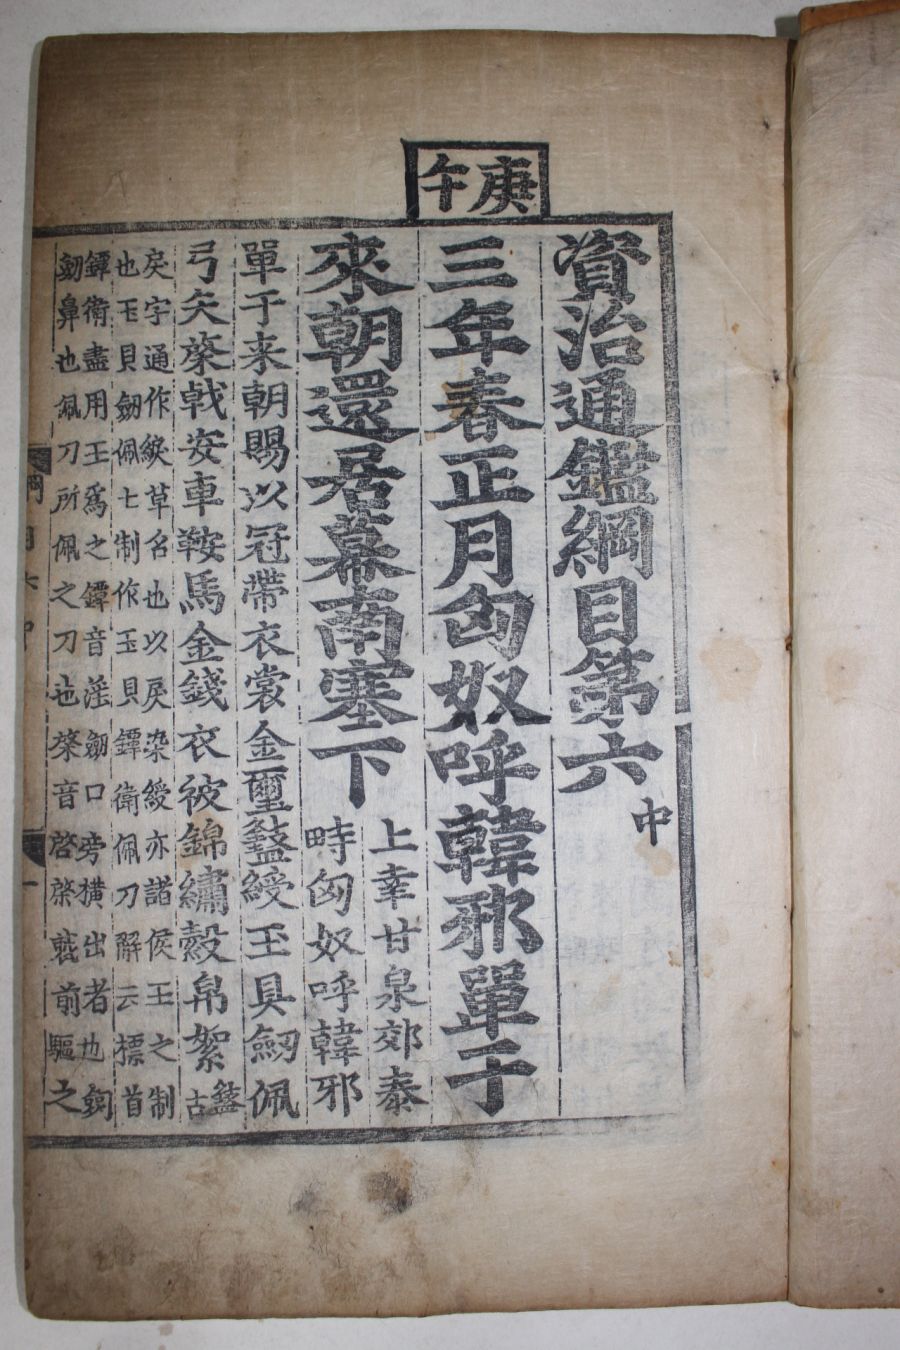 庚午
資治通鑑綱目第六中
三年春正月匈奴呼韓邪單于
來朝還居幕南塞下
上幸甘泉郊泰
畤匈奴呼韓邪
單于来朝賜以冠帶衣裳金璽盭綬玉具劒佩
弓矢棨戟安車鞍馬金錢衣被錦繡縠帛絮
盭
古
戾字通作綟草名也以戾染綬亦諸侯王之制
也玉貝劒佩七制作玉貝鐔衛佩刀解云摽首
鐔衛盡用玉爲之鐔音淫劒口旁橫出者也
劒鼻也佩刀所佩之刀也棨音啓棨戟前驅之
綱